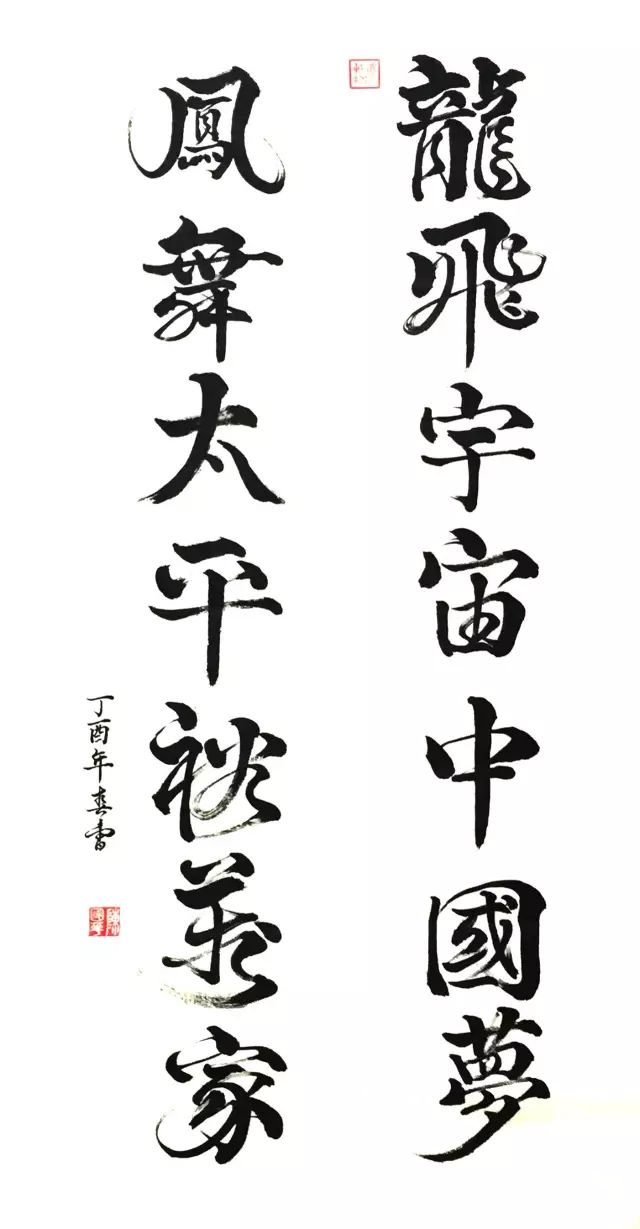 龍飛宇宙中國夢
鳳舞太平裕萬家
丁酉年春書